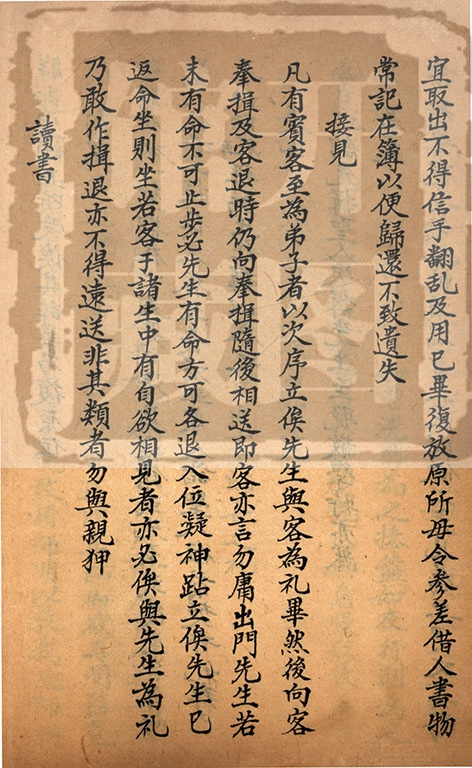 宜取出不得信手翻乱及用已畢復放原所毋令參差借人書物
常記在簿以便歸還不致遺失
接見
凡有賓客至為弟子者以次序立俟先生與客為礼畢然後向客
奉揖及客退時仍向奉揖隨後相送即客亦言勿庸出門先生若
未有命不可止步必先生有命方可各退入位凝神跕立俟先生已
返命坐則坐若客于諸生中有自欲相見者亦必俟與先生為礼
乃敢作揖退亦不得遠送非其類者勿與親狎
讀書